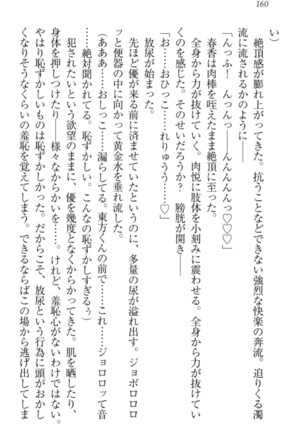 160
い）
絶頂感が膨れ上がってきた。抗うことなどできない強烈な快楽の奔流。迫りくる濁
流に流されるかのように――
「んっふ！　んんんっっ――んんんんっ♡♡♡」
春香は肉棒を咥えたまま絶頂に至った。
全身から力が抜けていく。肉悦に肢体を小刻みに震わせる。全身から力が抜けてい
くのを感じた。そのせいだろうか？　膀胱が開き――
「お……おひっこ……れりゅうぅ……♡」
放尿が始まった。
先ほど優が来る前に済ませていたというのに、多量の尿が溢れ出す。ジョボロロロ
ッと便器の中に向かって黄金水を垂れ流した。
（あああ……おしっこ……漏らしてる。東方くんの前で……これ……ジョロロッて音
……絶対聞かれてる。恥ずかしい。こんなの恥ずかしすぎるぅ）
犯されたいという欲望のままに、優を幾度となくからかってきた。肌を晒したり、
身体を押しつけたり――様々なからかいを……。けれど、羞恥心がないわけではない。
やはり恥ずかしいものは恥ずかしかった。だからこそ、放尿という行為に頭がおかし
くなりそうなくらいの羞恥を覚えてしまう。できるならばこの場から逃げ出してしま